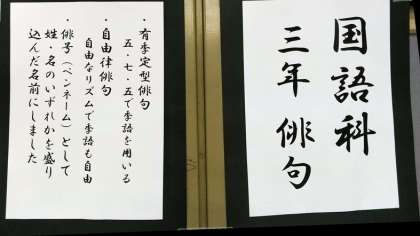 国語科
三年 俳句
・有季定型俳句
五・七・五で季語を用いる
・自由律俳句
自由なリズムで季語も自由
・俳号（ペンネーム）として
姓・名のいずれかを盛り
込んだ名前にしました